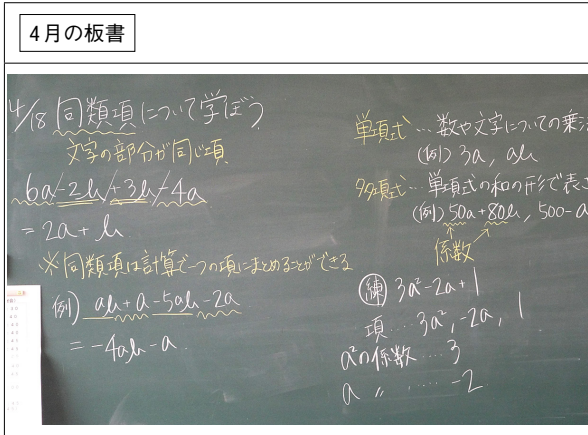 4月の板書
4/18 同類項について学ぼう
文字の部分が同じ項
6a-2b+3b-4a
= 2a+b
※同類項は計算で一つの項にまとめることができる
例) ab+a-5ab-2a
= -4ab-a
単項式…数や文字についての乗法
(例) 3a, ab
多項式…単項式の和の形で表さ
(例) 50a+80b, 500-a
係数
練 3a²-2a+1
項…3a², -2a, 1
a²の係数……3
a 〃 ……-2